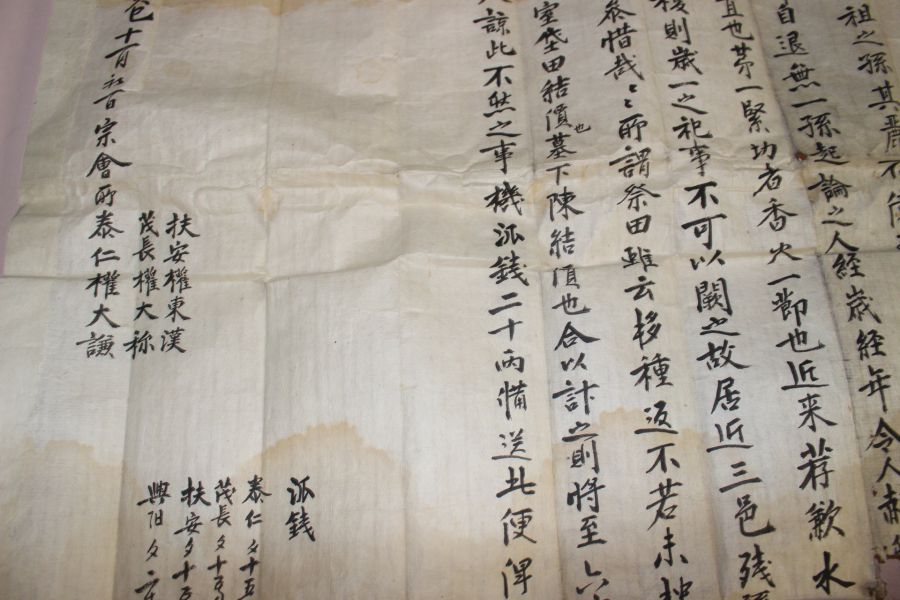 祖之孫其麗不
自退無一孫起論之人經歲經年令人赧
直也第一緊功者香火一節也近来荐歉水
後則歲一之祀事不可以闕之故居近三邑残
祭惜哉々所謂祭田雖云移種返不若未
室垈田結價也墓下陳結價也合以計之則將至六
諒此不然之事機派錢二十両備送此便俾
派錢
泰仁文十五
茂長文十
扶安文十五
興陽文
扶安權東漢
茂長權大称
十一月初一日宗會所泰仁權大謙